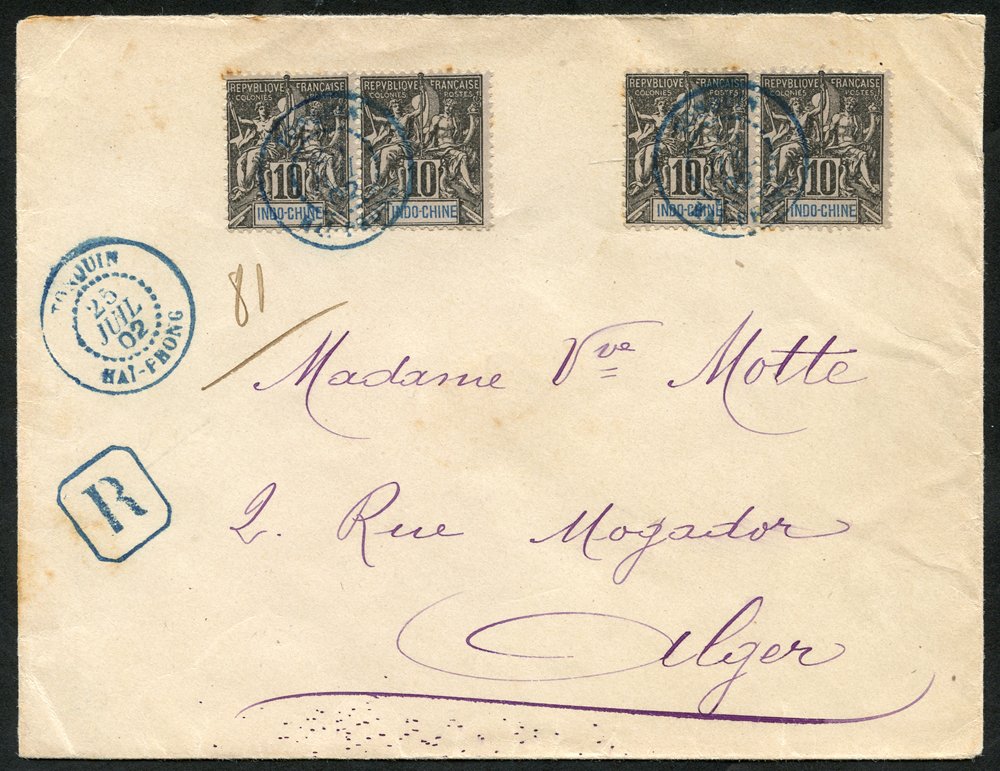 REPVBLIQVE FRANÇAISE
COLONIES POSTES
10
INDO-CHINE
REPVBLIQVE FRANÇAISE
COLONIES
10
INDO-CHINE
REPVBLIQVE FRANÇAISE
COLONIES POSTES
10
INDO-CHINE
REPVBLIQVE FRANÇAISE
COLONIES POSTES
10
INDO-CHINE
TONQUIN
25
JUIL
02
HAÏ-PHONG
81
Madame Vve Motte
R
2. Rue Mogador
Alger